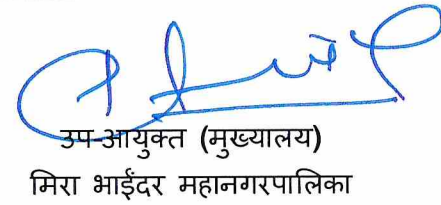 उप-आयुक्त (मुख्यालय)
मिरा भाईंदर महानगरपालिका